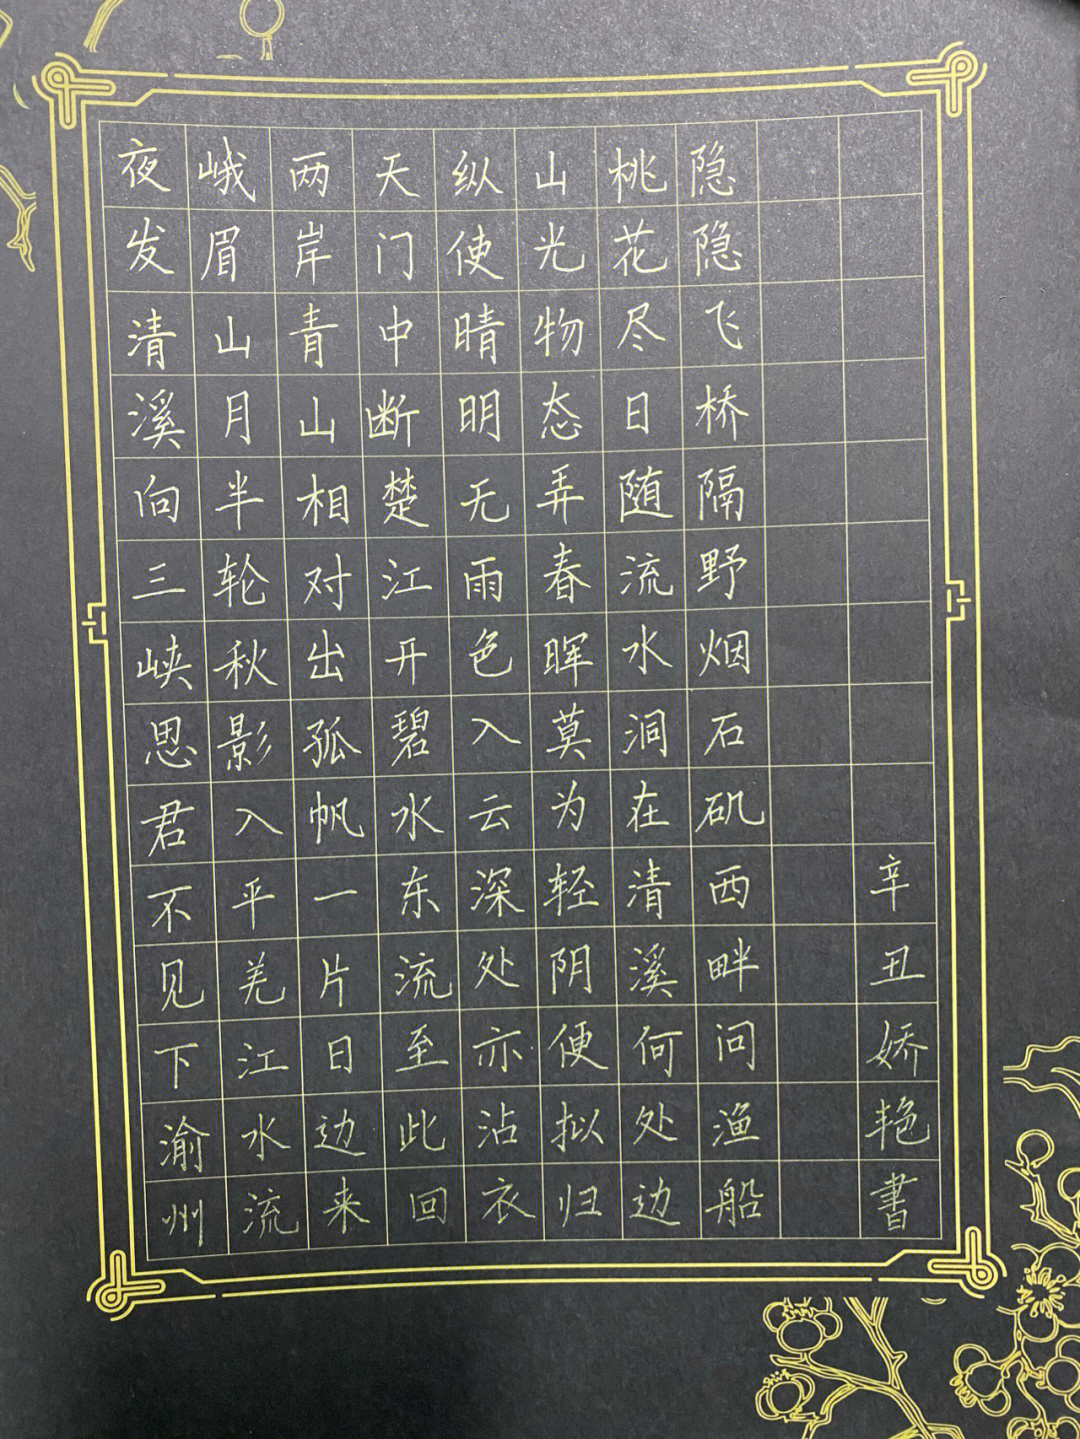 辛丑娇艳書
隐隐飞桥隔野烟石矶西畔问渔船
桃花尽日随流水洞在清溪何处边
山光物态弄春晖莫为轻阴便拟归
纵使晴明无雨色入云深处亦沾衣
天门中断楚江开碧水东流至此回
两岸青山相对出孤帆一片日边来
峨眉山月半轮秋影入平羌江水流
夜发清溪向三峡思君不见下渝州